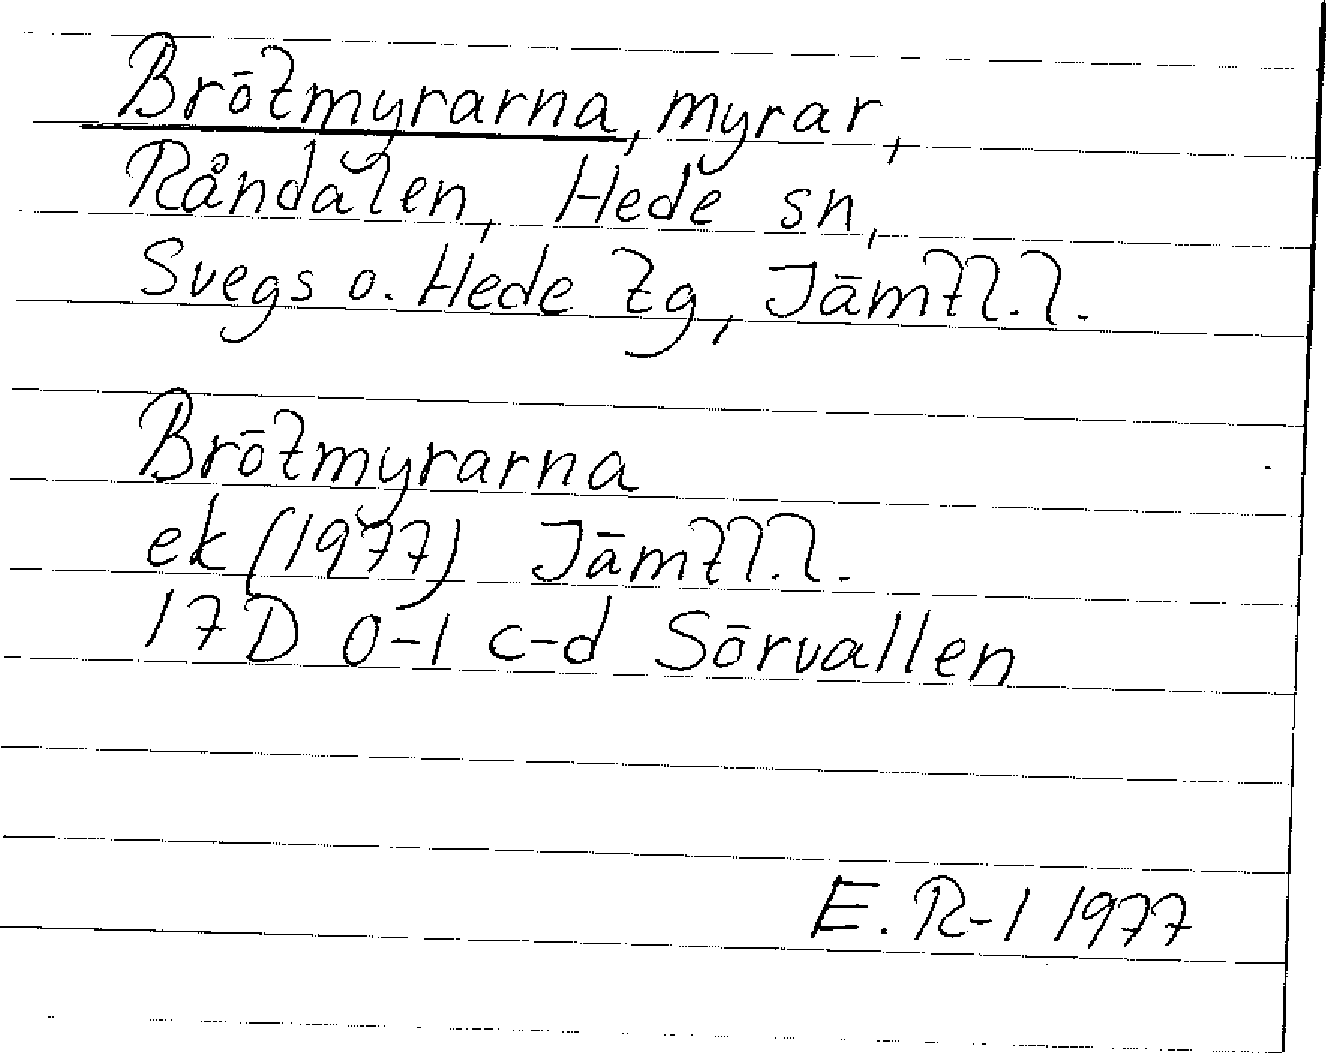 Brötmyrarna, myrar,
Råndalen, Hede sn,
Svegs o. Hede tg, Jämtl. l.
Brötmyrarna
ek (1977) Jämtl. l.
17D 0-1 c-d Sörvallen
E. R-l 1977